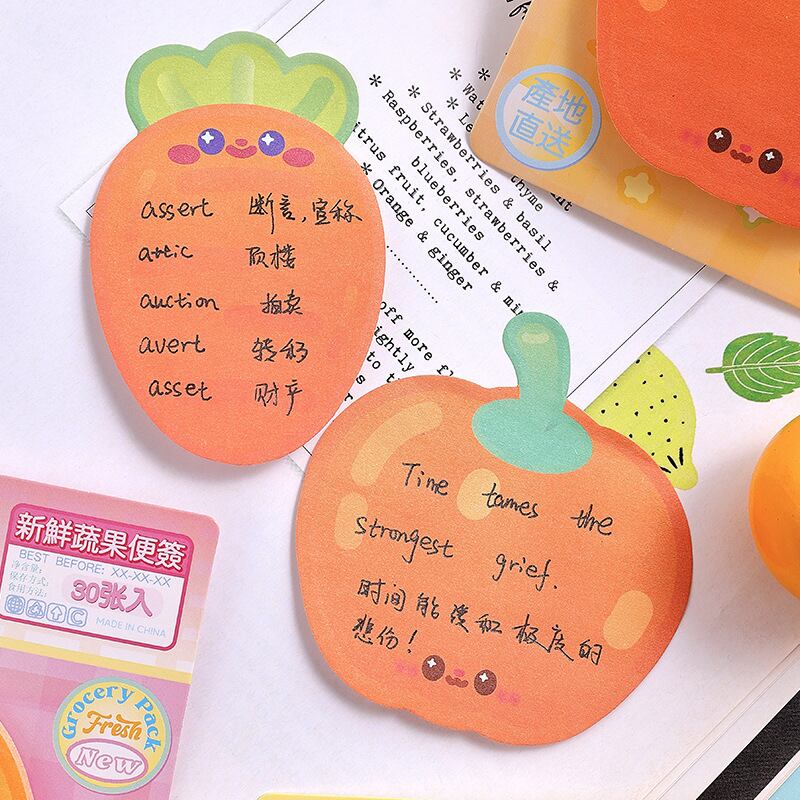 assert 断言,宣称
attic 顶楼
auction 拍卖
avert 转移
asset 财产
Time tames the
strongest grief.
时间能缓和极度的
悲伤!
* Strawberries & basil
* Raspberries, strawberries &
blueberries
citrus fruit, cucumber &
* Orange & ginger
thyme
off more
產地
直送
新鮮蔬果便簽
BEST BEFORE: XX-XX-XX
净含量:
保存方式:
食用方法:
30张入
MADE IN CHINA
Grocery Pack
Fresh
New